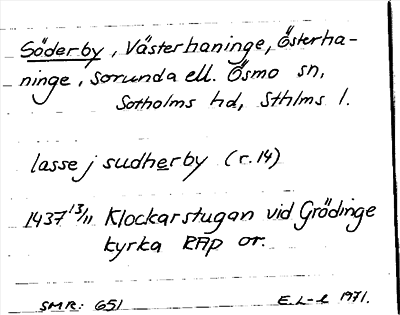 Söderby, Västerhaninge, Österha-
ninge, Sorunda ell. Ösmo sn,
Sotholms hd, Sthlms l.
lasse j sudherby (r. 14)
1437 13/11 Klockarstugan vid Grödinge
kyrka RAp or.
SMR: 651 E.L-l 1971.